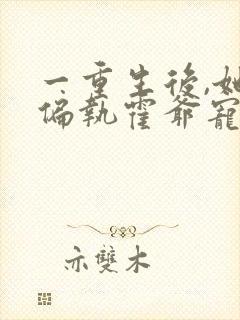 一重生後,她
偏執霍爺寵
亦雙木